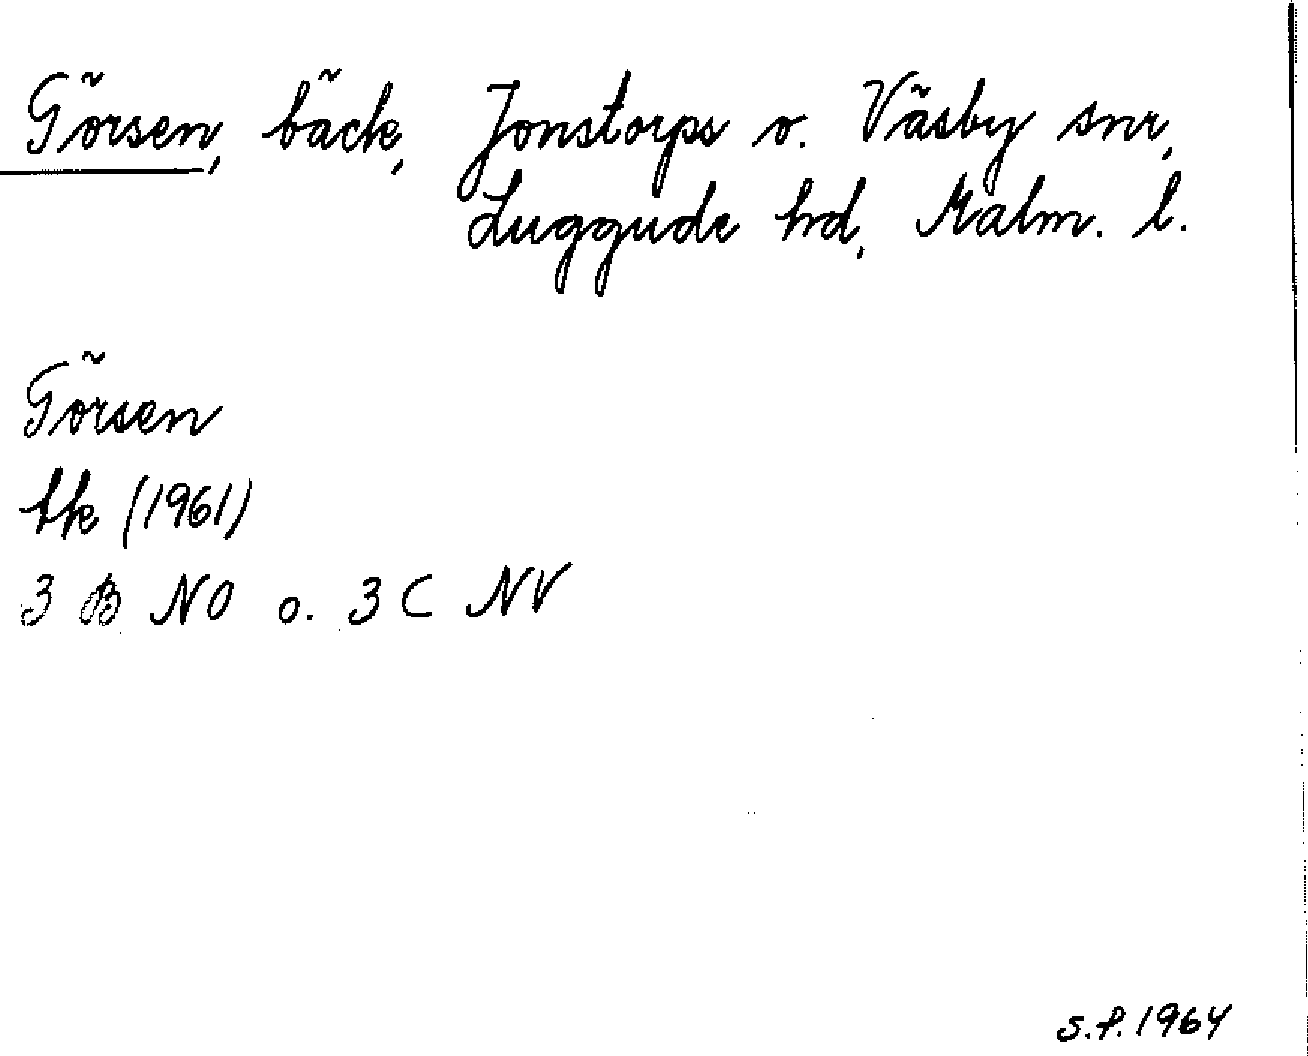 Görsen, bäck, Jonstorps o. Väsby snr,
Luggude hd, Malm. l.
Görsen
tk (1961)
3 B NO o. 3 C NV
S.P. 1964